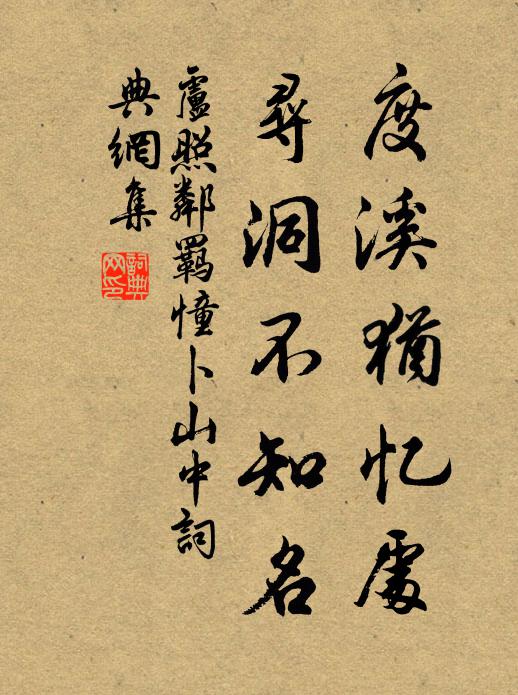 度溪犹忆处
尋洞不知名
盧照鄰羁憧卜山中詞
典網集
詞典网印